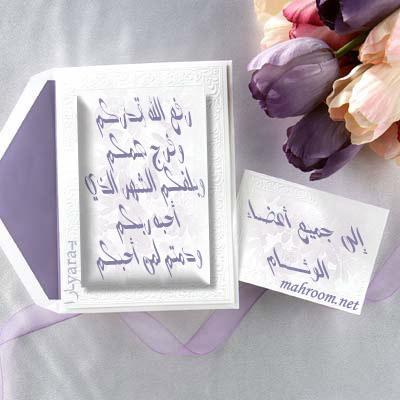 رفع الله قدركم
وفرج همكم
وبلغكم الشهر الذي
أحبه ربكم
ودمتم لمن أحبكم
إلى جميع أعضاء
الوئـــام
mahroom.net
yara